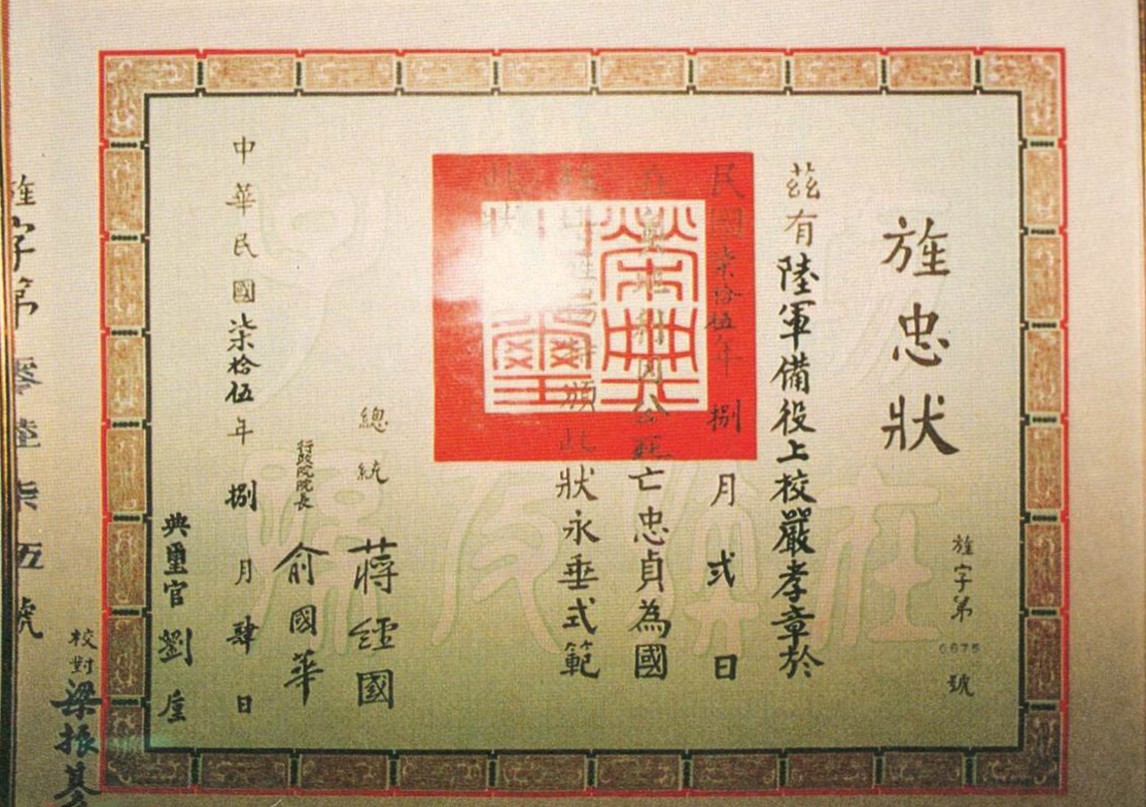 旌忠狀
旌字第0675號
茲有陸軍備役上校嚴孝章於
民國柒拾伍年捌月弍日
在奧地利因公死亡忠貞為國
特頒此狀永垂式範
此狀
榮典之璽
總統 蔣經國
行政院院長 俞國華
中華民國柒拾伍年捌月肆日
典璽官 劉垕
校對 梁振
旌字第零陸柒伍號